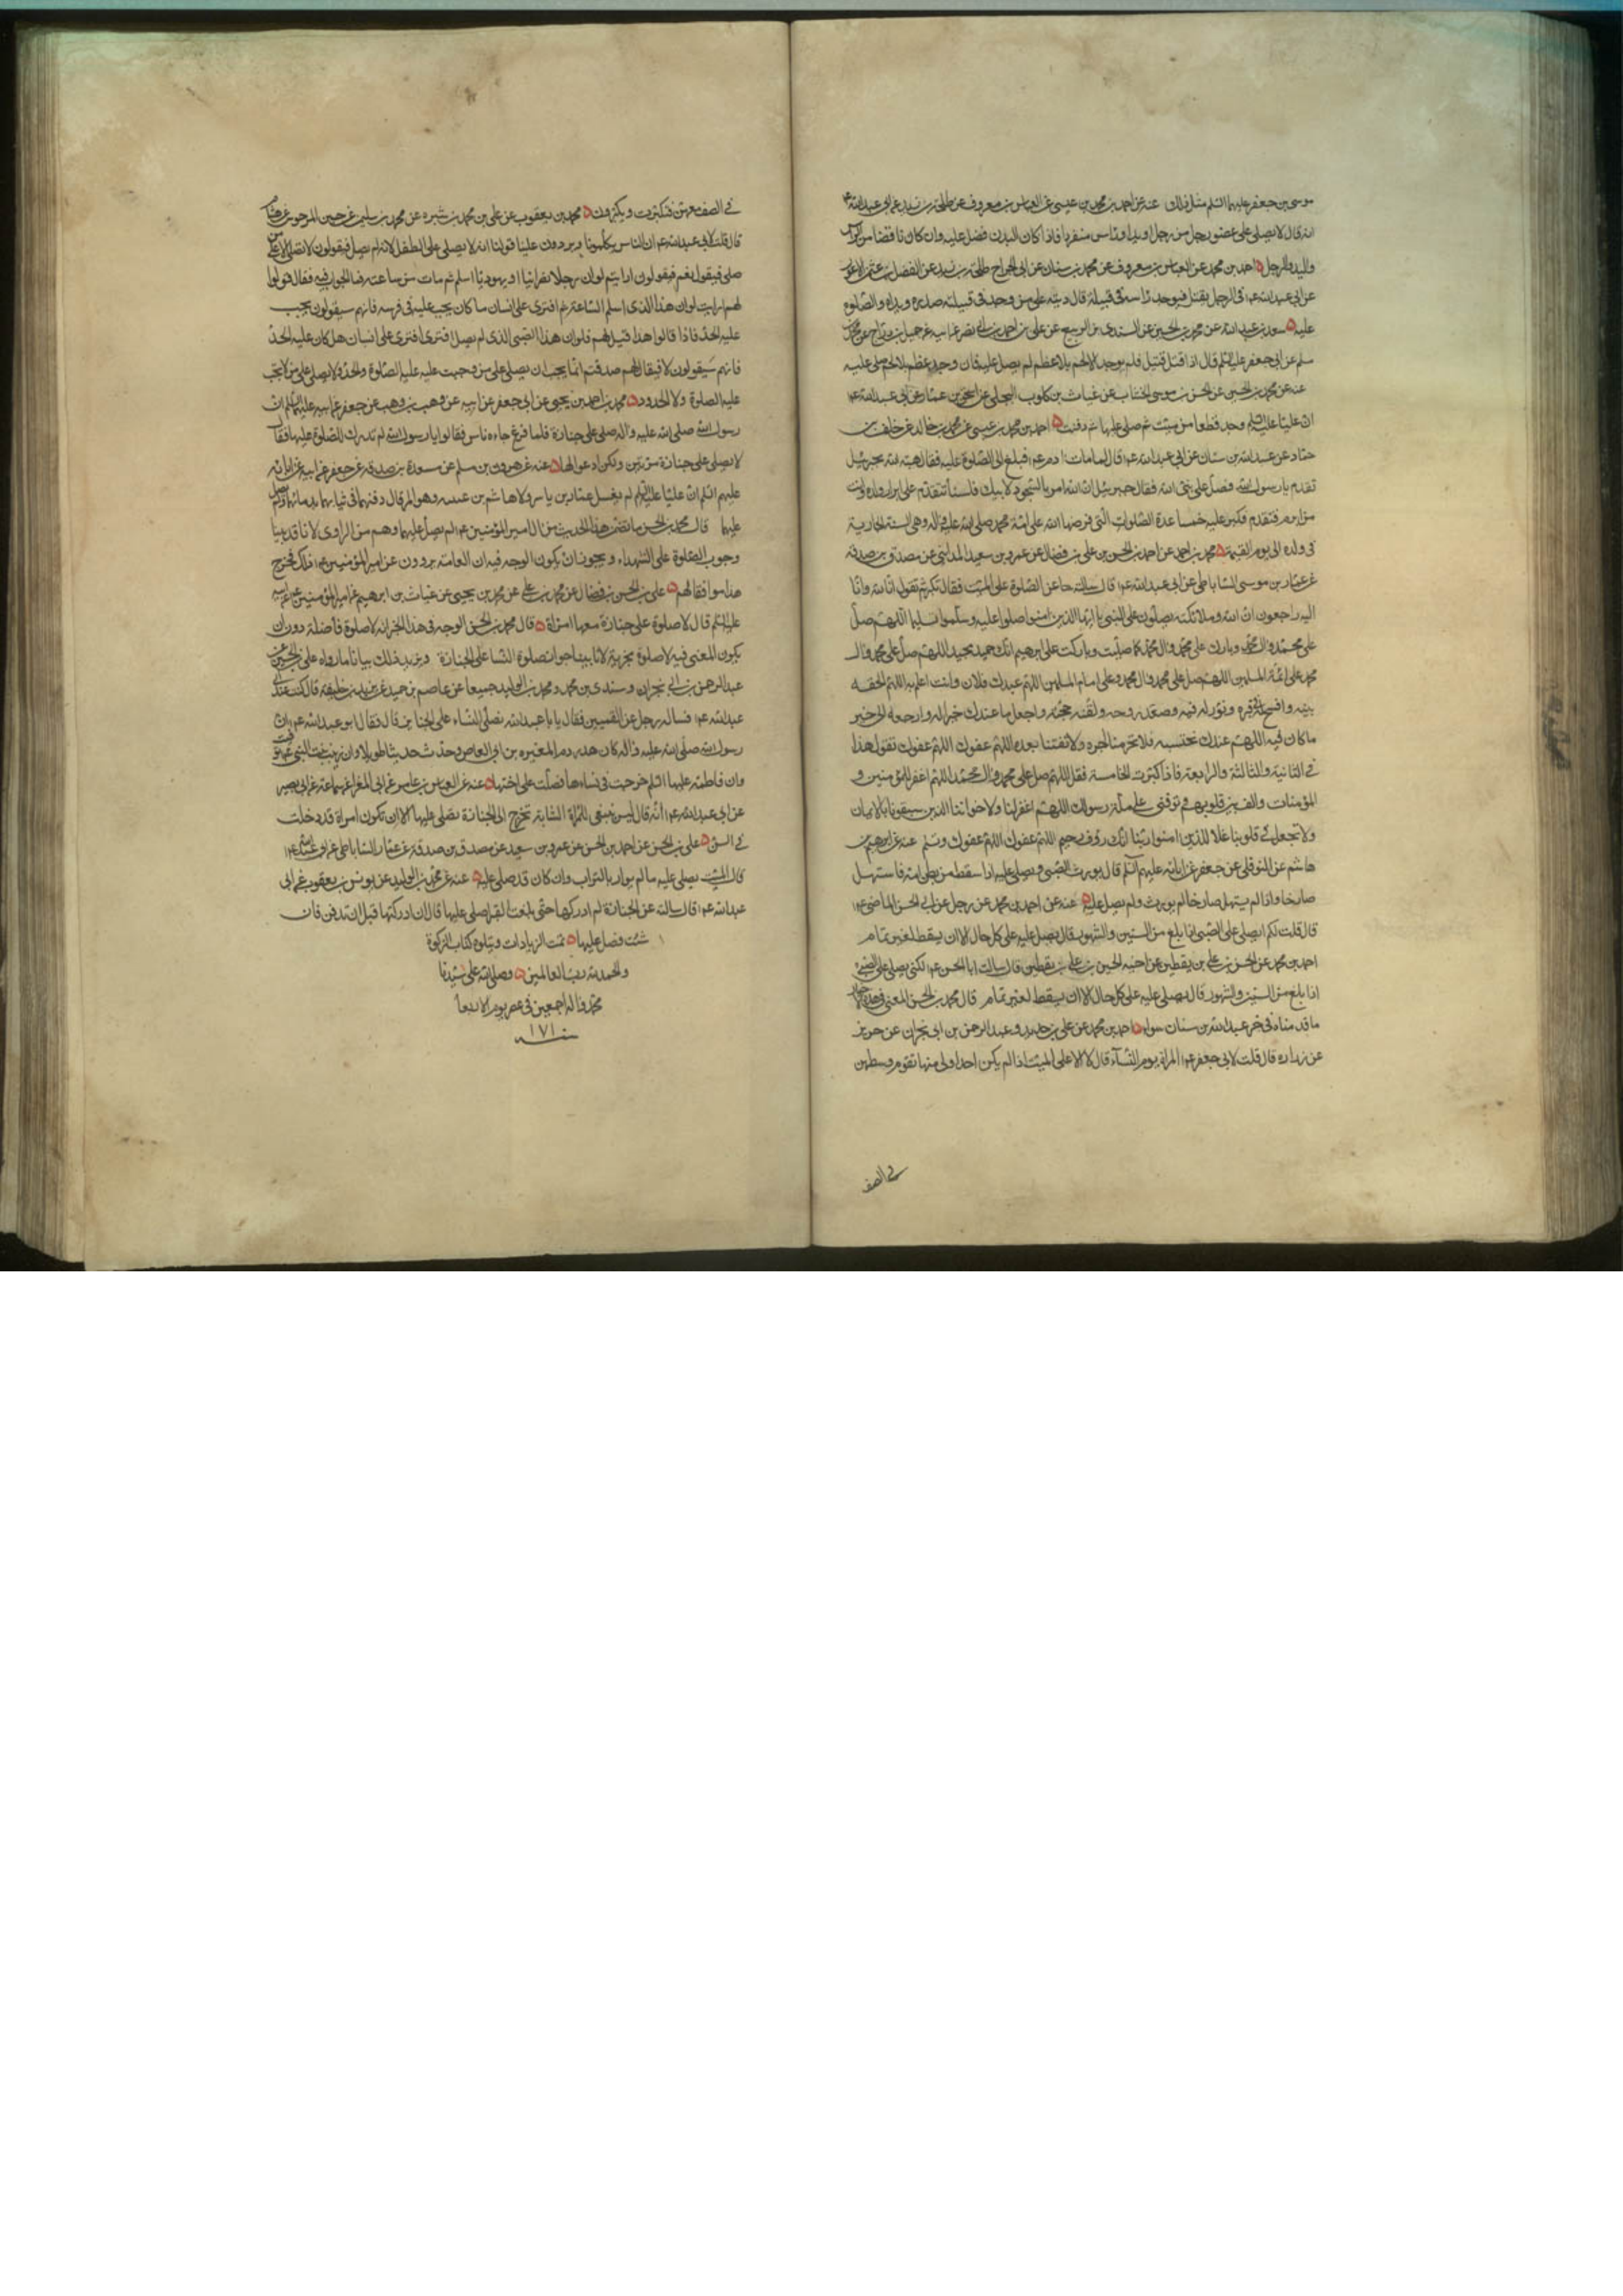 موسى بن جعفر عليهما السلم مثل ذلك عنه عن احمد بن محمد بن عيسى عن العباس بن معروف عن طلحة بن زيد عن ابى عبد الله ع
انه قال لا يصلى على عضو رجل من رجل او يد او راس منفردا فاذا كان البدن فصل عليه وان كان ناقصا من الراس
واليد والرجل احمد بن محمد عن العباس بن معروف عن محمد بن سنان عن ابى الجراح طلحة بن زيد عن الفضل بن عثمان الاعور
عن ابى عبد الله ع فى الرجل يقتل فيوجد راسه فى قبيلة قال ديته على من وجد فى قبيلته صدره ويداه والصلوة
عليه سعد بن عبد الله عن محمد بن الحسين عن السندى بن الربيع عن على بن احمد بن ابى نصر عن ابيه عن جميل بن دراج عن محمد بن
مسلم عن ابى جعفر عليه السلم قال اذا قتل قتيل فلم يوجد الا لحم بلا عظم لم يصل عليه فان وجد عظم بلا لحم صلى عليه
عنه عن محمد بن الحسين عن الحسن بن موسى الخشاب عن غياث بن كلوب البجلى عن اسحق بن عمار عن ابى عبد الله ع
ان عليا عليه السلم وجد قطعا من ميت ثم صلى عليها ثم دفنت احمد بن محمد بن عيسى عن محمد بن خالد عن خلف بن
حماد عن عبد الله بن سنان عن ابى عبد الله ع قال لما مات ادم ع فبلغ الى الصلوة عليه فقال هبة الله لجبرئيل
تقدم يا رسول الله فصل على نبى الله فقال جبرئيل ان الله امرنا بالسجود لابيك فلسنا نتقدم على ابرار ولده وانت
من ابرهم فتقدم فكبر عليه خمسا عدة الصلوات التى فرضها الله على امة محمد صلى الله عليه واله وهى السنة الجارية
فى ولده الى يوم القيمة محمد بن احمد عن احمد بن الحسن بن على بن فضال عن عمرو بن سعيد المدائنى عن مصدق بن صدقة
عن عمار بن موسى الساباطى عن ابى عبد الله ع قال سالته عن الصلوة على الميت فقال تكبر ثم تقول انا لله وانا
اليه راجعون ان الله وملائكته يصلون على النبى يا ايها الذين امنوا صلوا عليه وسلموا تسليما اللهم صل
على محمد وال محمد وبارك على محمد وال محمد كما صليت وباركت على ابرهيم انك حميد مجيد اللهم صل على محمد وال
محمد على ائمة المسلمين اللهم صل على محمد وال محمد وعلى امام المسلمين اللهم عبدك فلان وانت اعلم به اللهم الحقه
بنبيه وافسح له قبره ونور له فيه وصعد روحه ولقنه حجته واجعل ما عندك خيرا له وارجعه الى خير
ما كان فيه اللهم عندك نحتسبه فلا تحرمنا اجره ولا تفتنا بعده اللهم عفوك اللهم عفوك تقول هذا
فى الثانية والثالثة والرابعة فاذا كبرت الخامسة فقل اللهم صل على محمد وال محمد اللهم اغفر للمؤمنين و
المؤمنات والف بين قلوبهم وتوفنى على ملة رسولك اللهم اغفر لنا ولاخواننا الذين سبقونا بالايمان
ولا تجعل فى قلوبنا غلا للذين امنوا ربنا انك رؤف رحيم اللهم عفوك اللهم عفوك وتسلم عنه عن ابرهيم بن
هاشم عن النوفلى عن جعفر عن ابائه عليهم السلم قال يورث الصبى ويصلى عليه اذا سقط من بطن امه فاستهل
صارخا واذا لم يستهل صارخا لم يورث ولم يصل عليه عنه عن احمد بن محمد عن رجل عن ابى الحسن الماضى ع
قال قلت لكم يصلى على الصبى اذا بلغ من السنين والشهور قال يصلى عليه على كل حال الا ان يسقط لغير تمام
احمد بن محمد عن الحسن بن على بن يقطين عن اخيه الحسين بن على بن يقطين قال سالت ابا الحسن ع لكم يصلى على الصبى
اذا بلغ من السنين والشهور قال يصلى عليه على كل حال الا ان يسقط لغير تمام قال محمد بن الحسن المعنى فى هذه الاخبار
ما قدمناه فى خبر عبد الله بن سنان سواء احمد بن محمد عن على بن حديد وعبد الرحمن بن ابى نجران عن حريز
عن زراره قال قلت لابى جعفر ع المراة يوم النساء قال لا الا على الميت اذا لم يكن احد اولى منها تقوم وسطهن
فى الصف
فى الصف معهن فتكبر ويكبرون محمد بن يعقوب عن على بن محمد بن شيره عن محمد بن سليمن عن حسين المرجوس عن هشام
قال قلت لابى عبد الله ع ان الناس يكلمونا ويردون علينا قولنا انه لا يصلى على الطفل لانه لم يصل فيقولون لا نصلى الا على من
صلى فيقول نعم فيقولون ارايتم لو ان رجلا نصرانيا او يهوديا اسلم ثم مات من ساعته فما الجواب فيه فقال قولوا
لهم ارايت لو ان هذا الذى اسلم الساعة ثم افترى على انسان ما كان يجب عليه فى فريته فانهم سيقولون يجب
عليه الحد فاذا قالوا هذا قيل لهم فلو ان هذا الصبى الذى لم يصل افترى على انسان هل كان عليه الحد
فانهم سيقولون لا فيقال لهم صدقتم انما يجب ان يصلى على من وجبت عليه الصلوة والحد ولا يصلى على من لا تجب
عليه الصلوة ولا الحدود محمد بن احمد بن يحيى عن ابى جعفر عن ابيه عن وهب بن وهب عن جعفر عن ابيه عليهما السلم ان
رسول الله صلى الله عليه واله صلى على جنازة فلما فرغ جاءه ناس فقالوا يا رسول الله لم ندرك الصلوة عليها فقال
لا يصلى على جنازة مرتين ولكن ادعوا لها عنه عن هرون بن مسلم عن مسعدة بن صدقة عن جعفر عن ابيه عن ابائه
عليهم السلم ان عليا عليه السلم لم يغسل عمار بن ياسر ولا هاشم بن عتبه وهو المرقال دفنهما فى ثيابهما بدمائهما ولم يصل
عليهما قال محمد بن الحسن ما تضمن هذا الحديث من ان امير المؤمنين ع لم يصل عليهما وهم من الراوى لانا قد بينا
وجوب الصلوة على الشهداء ويجوز ان يكون الوجه فيه ان العامة يروون عن امير المؤمنين ع ذلك فخرج
هذا موافقا لهم على بن الحسن بن فضال عن محمد بن على عن محمد بن يحيى عن غياث بن ابرهيم عن امير المؤمنين
عليه السلم قال لا صلوة على جنازة معها امراة قال محمد بن الحسن الوجه فى هذا الخبر انه لا صلوة فاضلة دون ان
يكون المعنى فيه لا صلوة مجزية لانا بينا جواز صلوة النسا على الجنازة ويزيد ذلك بيانا ما رواه على بن الحسين عن
عبد الرحمن بن ابى نجران وسندى بن محمد ومحمد بن الوليد جميعا عن عاصم بن حميد عن يزيد بن خليفه قال كنت عند ابى
عبد الله ع فساله رجل من القميين فقال يا با عبد الله تصلى النساء على الجنايز قال فقال ابو عبد الله ع ان
رسول الله صلى الله عليه واله كان هدر دم المغيره بن ابى العاص وحدث حديثا طويلا وان زينب بنت النبى ع توفيت
وان فاطمة عليها السلم خرجت فى نساءها فصلت على اختها عنه عن العباس بن عامر عن ابى المغرا عن سماعة عن ابى بصير
عن ابى عبد الله ع انه قال ليس ينبغى للمراة الشابة تخرج الى الجنازة تصلى عليها الا ان تكون امراة قد دخلت
فى السن على بن الحسن عن احمد بن الحسن عن عمرو بن سعيد عن مصدق بن صدقة عن عمار الساباطى عن ابى عبد الله ع
قال الميت يصلى عليه ما لم يوار بالتراب وان كان قد صلى عليه عنه عن محمد بن الوليد عن يونس بن يعقوب عن ابى
عبد الله ع قال سالته عن الجنازة لم ادركها حتى بلغت القبر اصلى عليها قال ان ادركتها قبل ان تدفن فان
شئت فصل عليها تمت الزيادات ويتلوه كتاب الزكوة
والحمد لله رب العالمين وصلى الله على سيدنا
محمد واله اجمعين فى عصر يوم الاربعا
سنه ١٧١